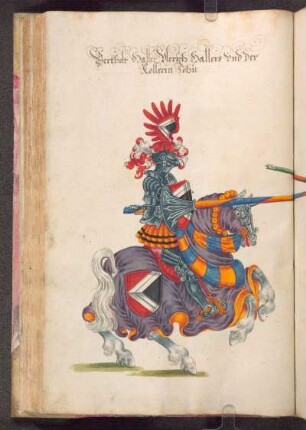 Berthold Haller Ulrich Hallers Und Der
Kollerin Sohn